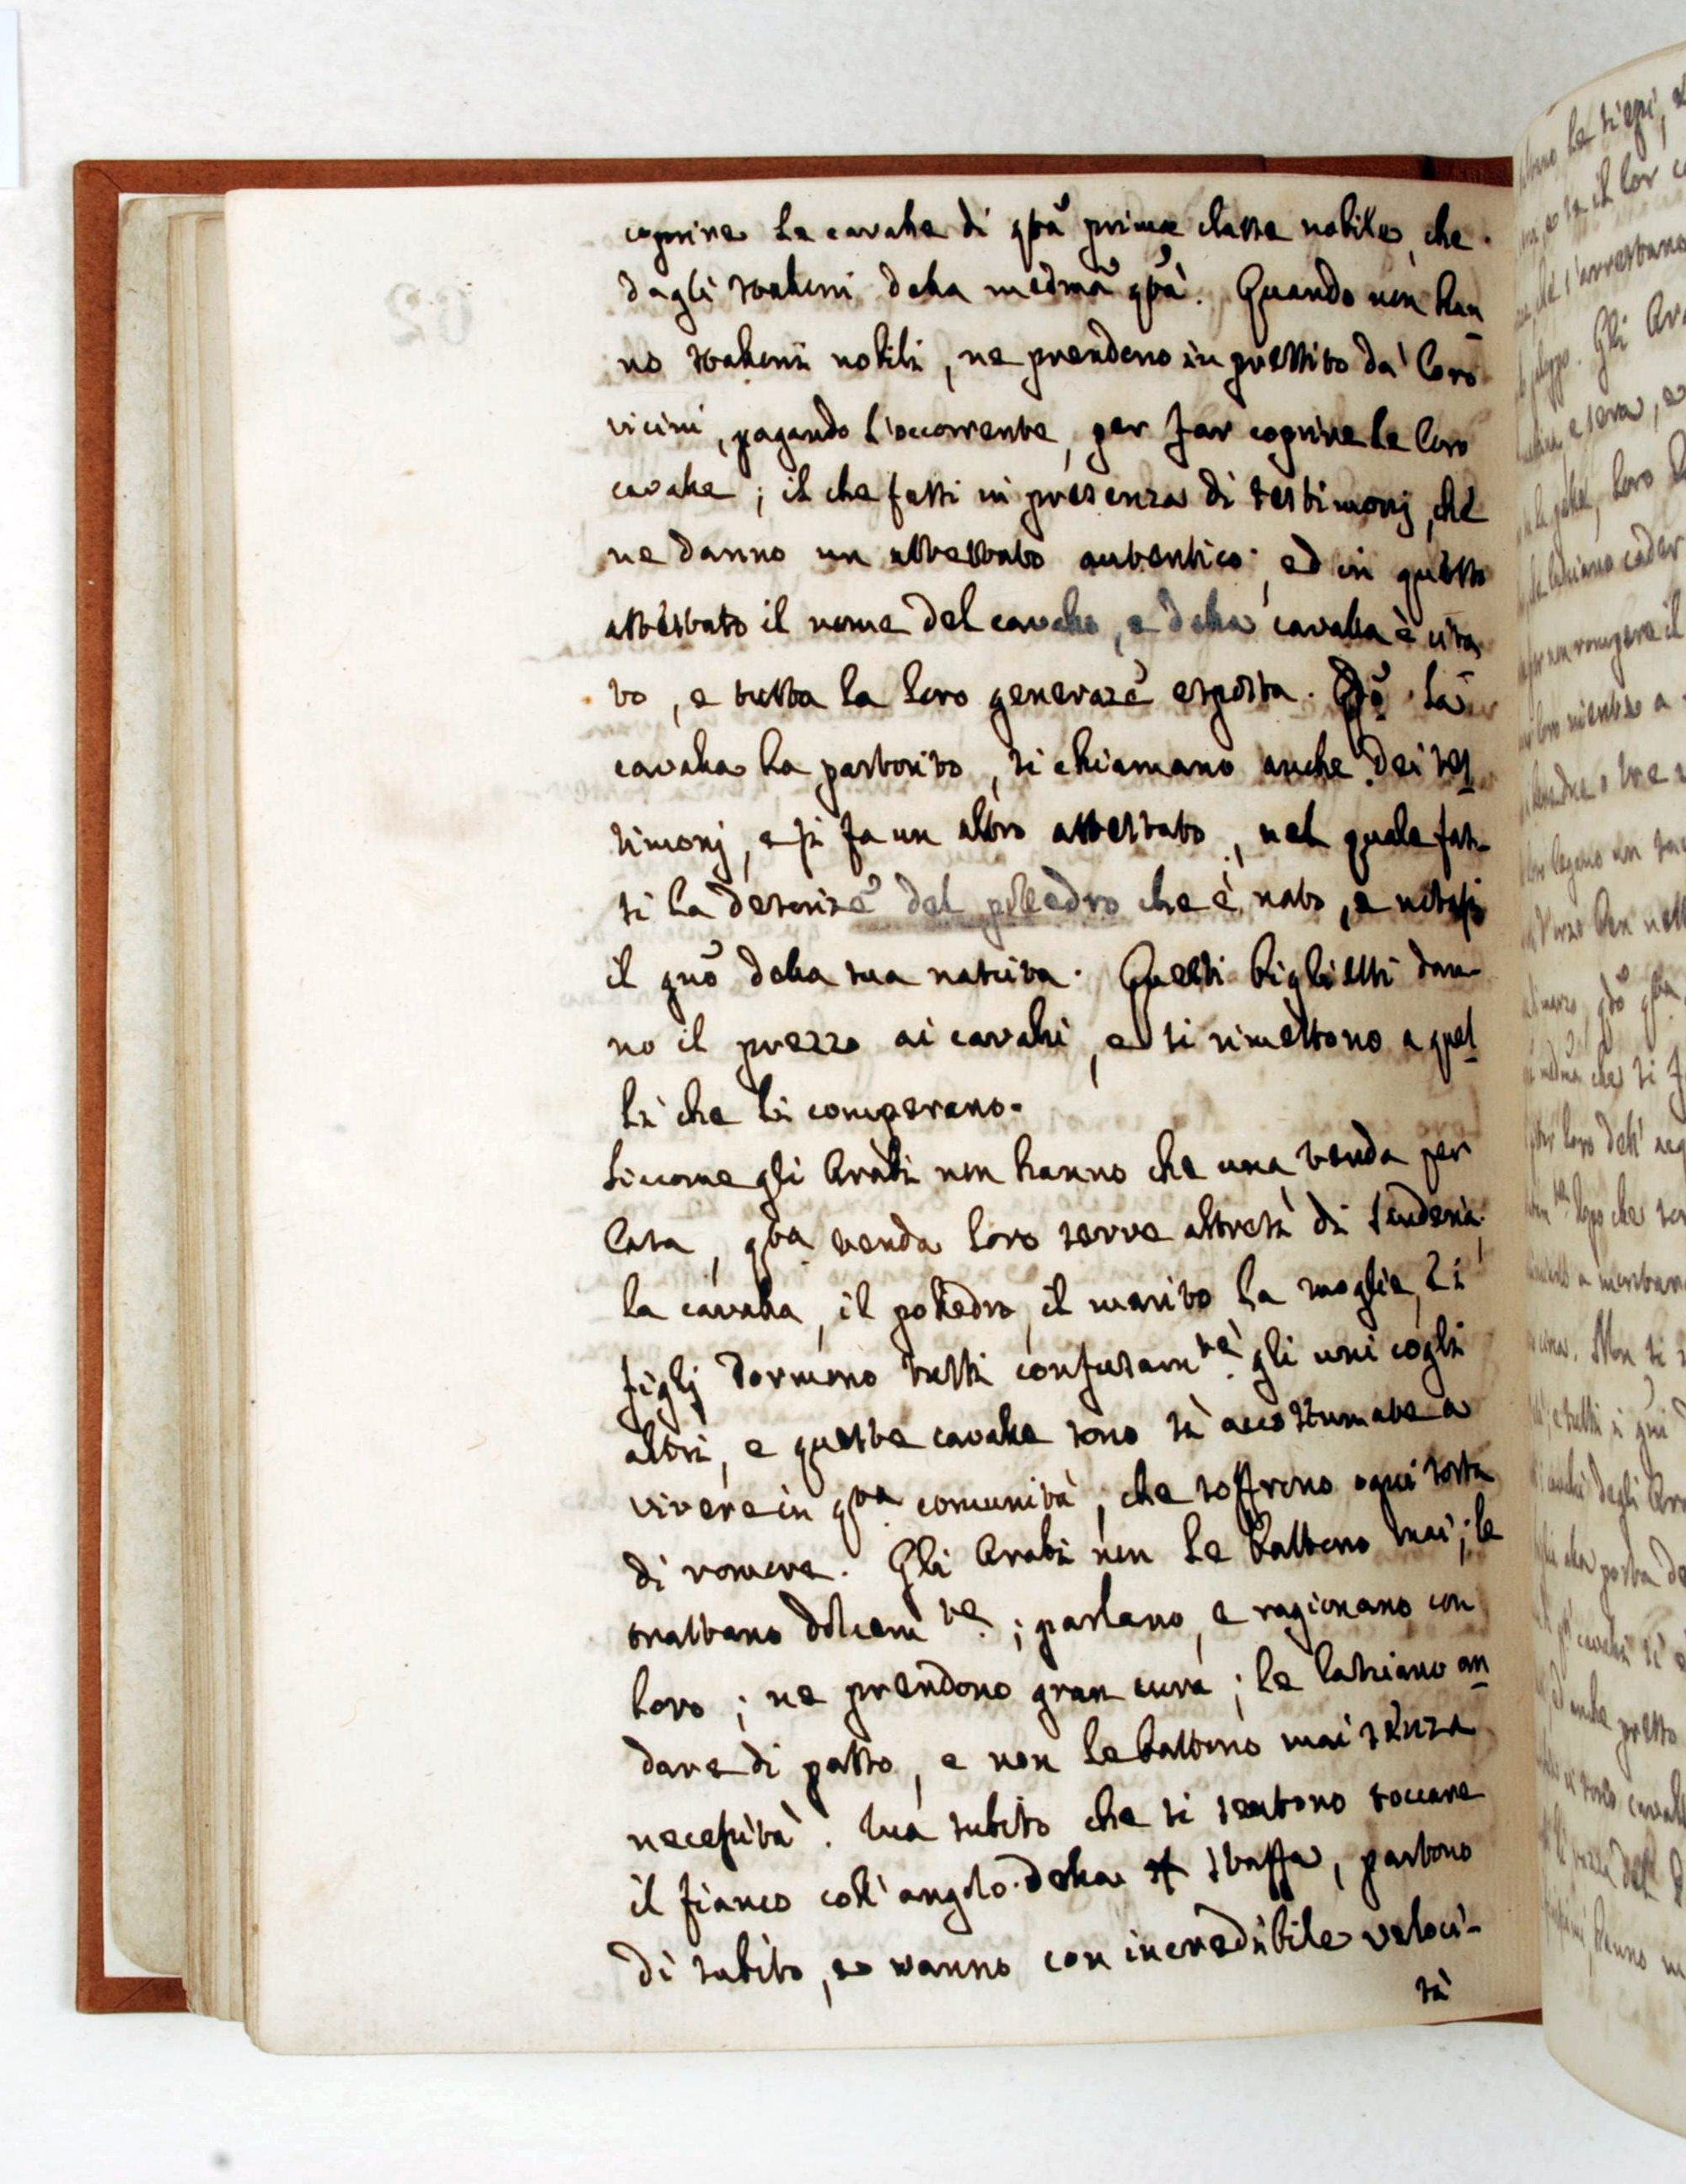 coprire le cavalle di qsta prima classe nobile, che
dagli stalloni della medma qtà. Quando non han
no stalloni nobili, ne prendono in prestito da' loro
vicini, pagando l'occorrente, per far coprire le loro
cavalle; il che fassi in presenza di testimonj, che
ne danno un attestato autentico; ed in questo
attestato il nome del cavallo, e della cavalla è cita
to, e tutta la loro generazē esposta. Qdo la
cavalla ha partorito, si chiamano anche dei tes
timonj, e si fa un altro attestato, nel quale fas-
si la descrizē del polledro che è nato, e notasi
il gno della sua nascita. Questi biglietti dan-
no il prezzo ai cavalli, e si rimettono a quel
li che li comperano.
Siccome gli Arabi non hanno che una tenda per
Casa, qta tenda loro serve altresì di scuderia;
la cavalla, il polledro, il marito la moglie, li
figlj dormono tutti confusamte. gli uni cogli
altri, e queste cavalle sono sì accostumate a
vivere in qta comunità, che soffrono ogni sorta
di romore. Gli Arabi non le battono mai; le
trattano dolcemte.; parlano, e ragionano con
loro; ne prendono gran cura; le lasciano an
dare di passo, e non le battono mai senza
necessità. Ma subito che si sentono toccare
il fianco coll' angolo della staffa, partono
di subito, e vanno con incredibile veloci-
tà